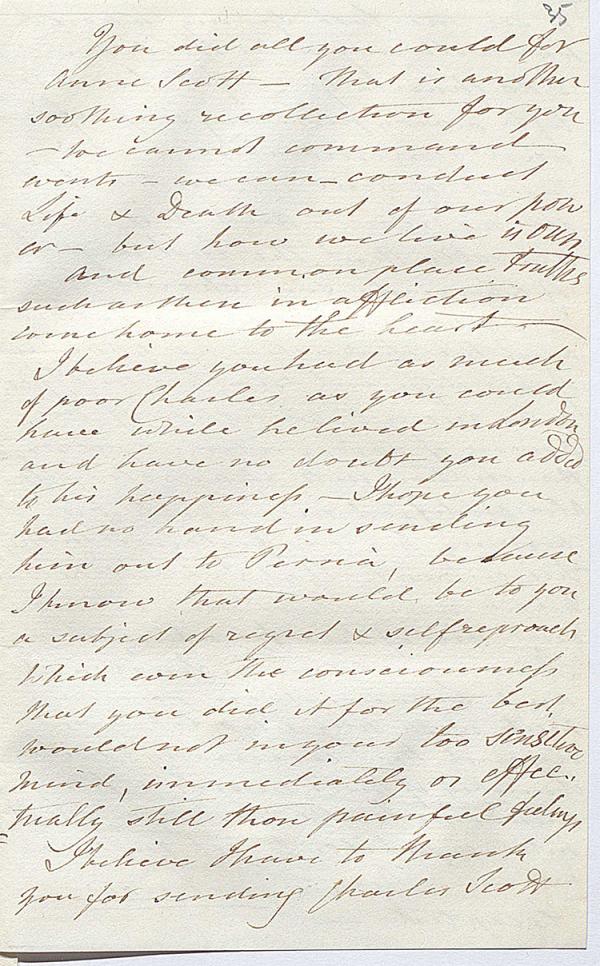 35
You did all you could for
Anne Scott — that is another
soothing recollection for you
— We cannot command
events — we can — conduct
Life & Death out of our pow
er — but how we live is our
and common place truths
such as these in affliction
come home to the heart —
I believe you had as much
of poor Charles as you could
have while he lived in London
and have no doubt you added
to his happiness — I hope you
had no hand in sending
him out to Persia, because
I know that would be to you
a subject of regret & selfreproach
which even the consciousness
that you did it for the best,
would not in your too sensitive
mind, immediately or effec-
tually still those painful feelings
I believe I have to thank
you for sending Charles Scott